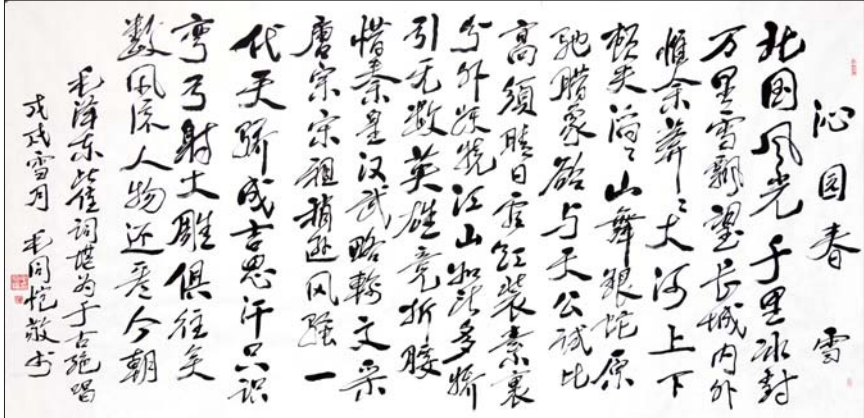 沁园春 雪
北国风光千里冰封
万里雪飘望长城内外
惟余莽々大河上下
顿失滔々山舞银蛇原
驰腊象欲与天公试比
高须晴日看红装素裹
分外妖娆江山如此多娇
引无数英雄竞折腰
惜秦皇汉武略输文采
唐宗宋祖稍逊风骚一
代天骄成吉思汗只识
弯弓射大雕俱往矣
数风流人物还看今朝
毛泽东词堪为千古绝唱
戊戌雪月 毛同恺敬书